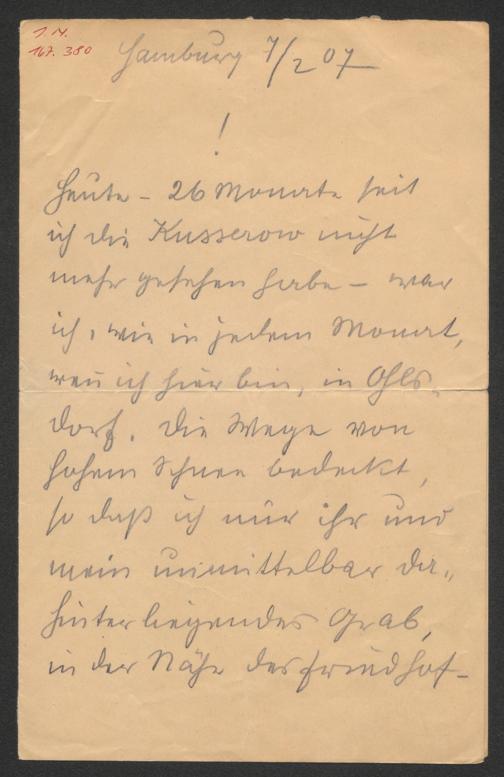 I. N.
167.380
Hamburg 7/2 07
!
Heute – 26 Monate seit
ich die Kusserow nicht
mehr gesehen habe – war
ich, wie in jedem Monat,
wen̅ ich hier bin, in Ohls-
dorf. Die Wege von
hohem Schnee bedeckt,
so daß ich nur ihr und
mein unmittelbar da-
hinterliegendes Grab,
in der Nähe des Friedhof-